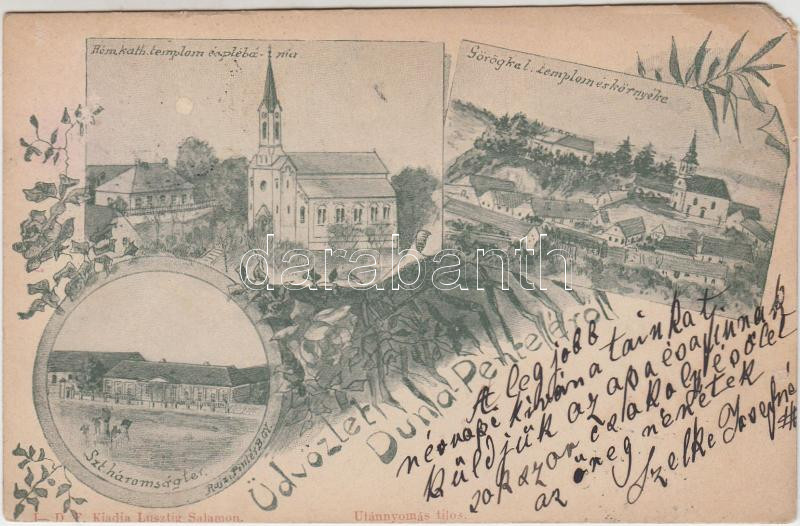 Róm.kath. templom és plébánia
Görögkel. templom és környéke
Szt háromságtér.
Üdvözlet
Duna-Penteléről
A legjobb
névnapi kivánatainkat
küldjük az apa és anyának
sokszor csókolyés ölel
az öreg nénétek
Szelke Josefné
I— D. P. Kiadja Lusztig Salamon.
Utánnyomás tilos.
darabanth